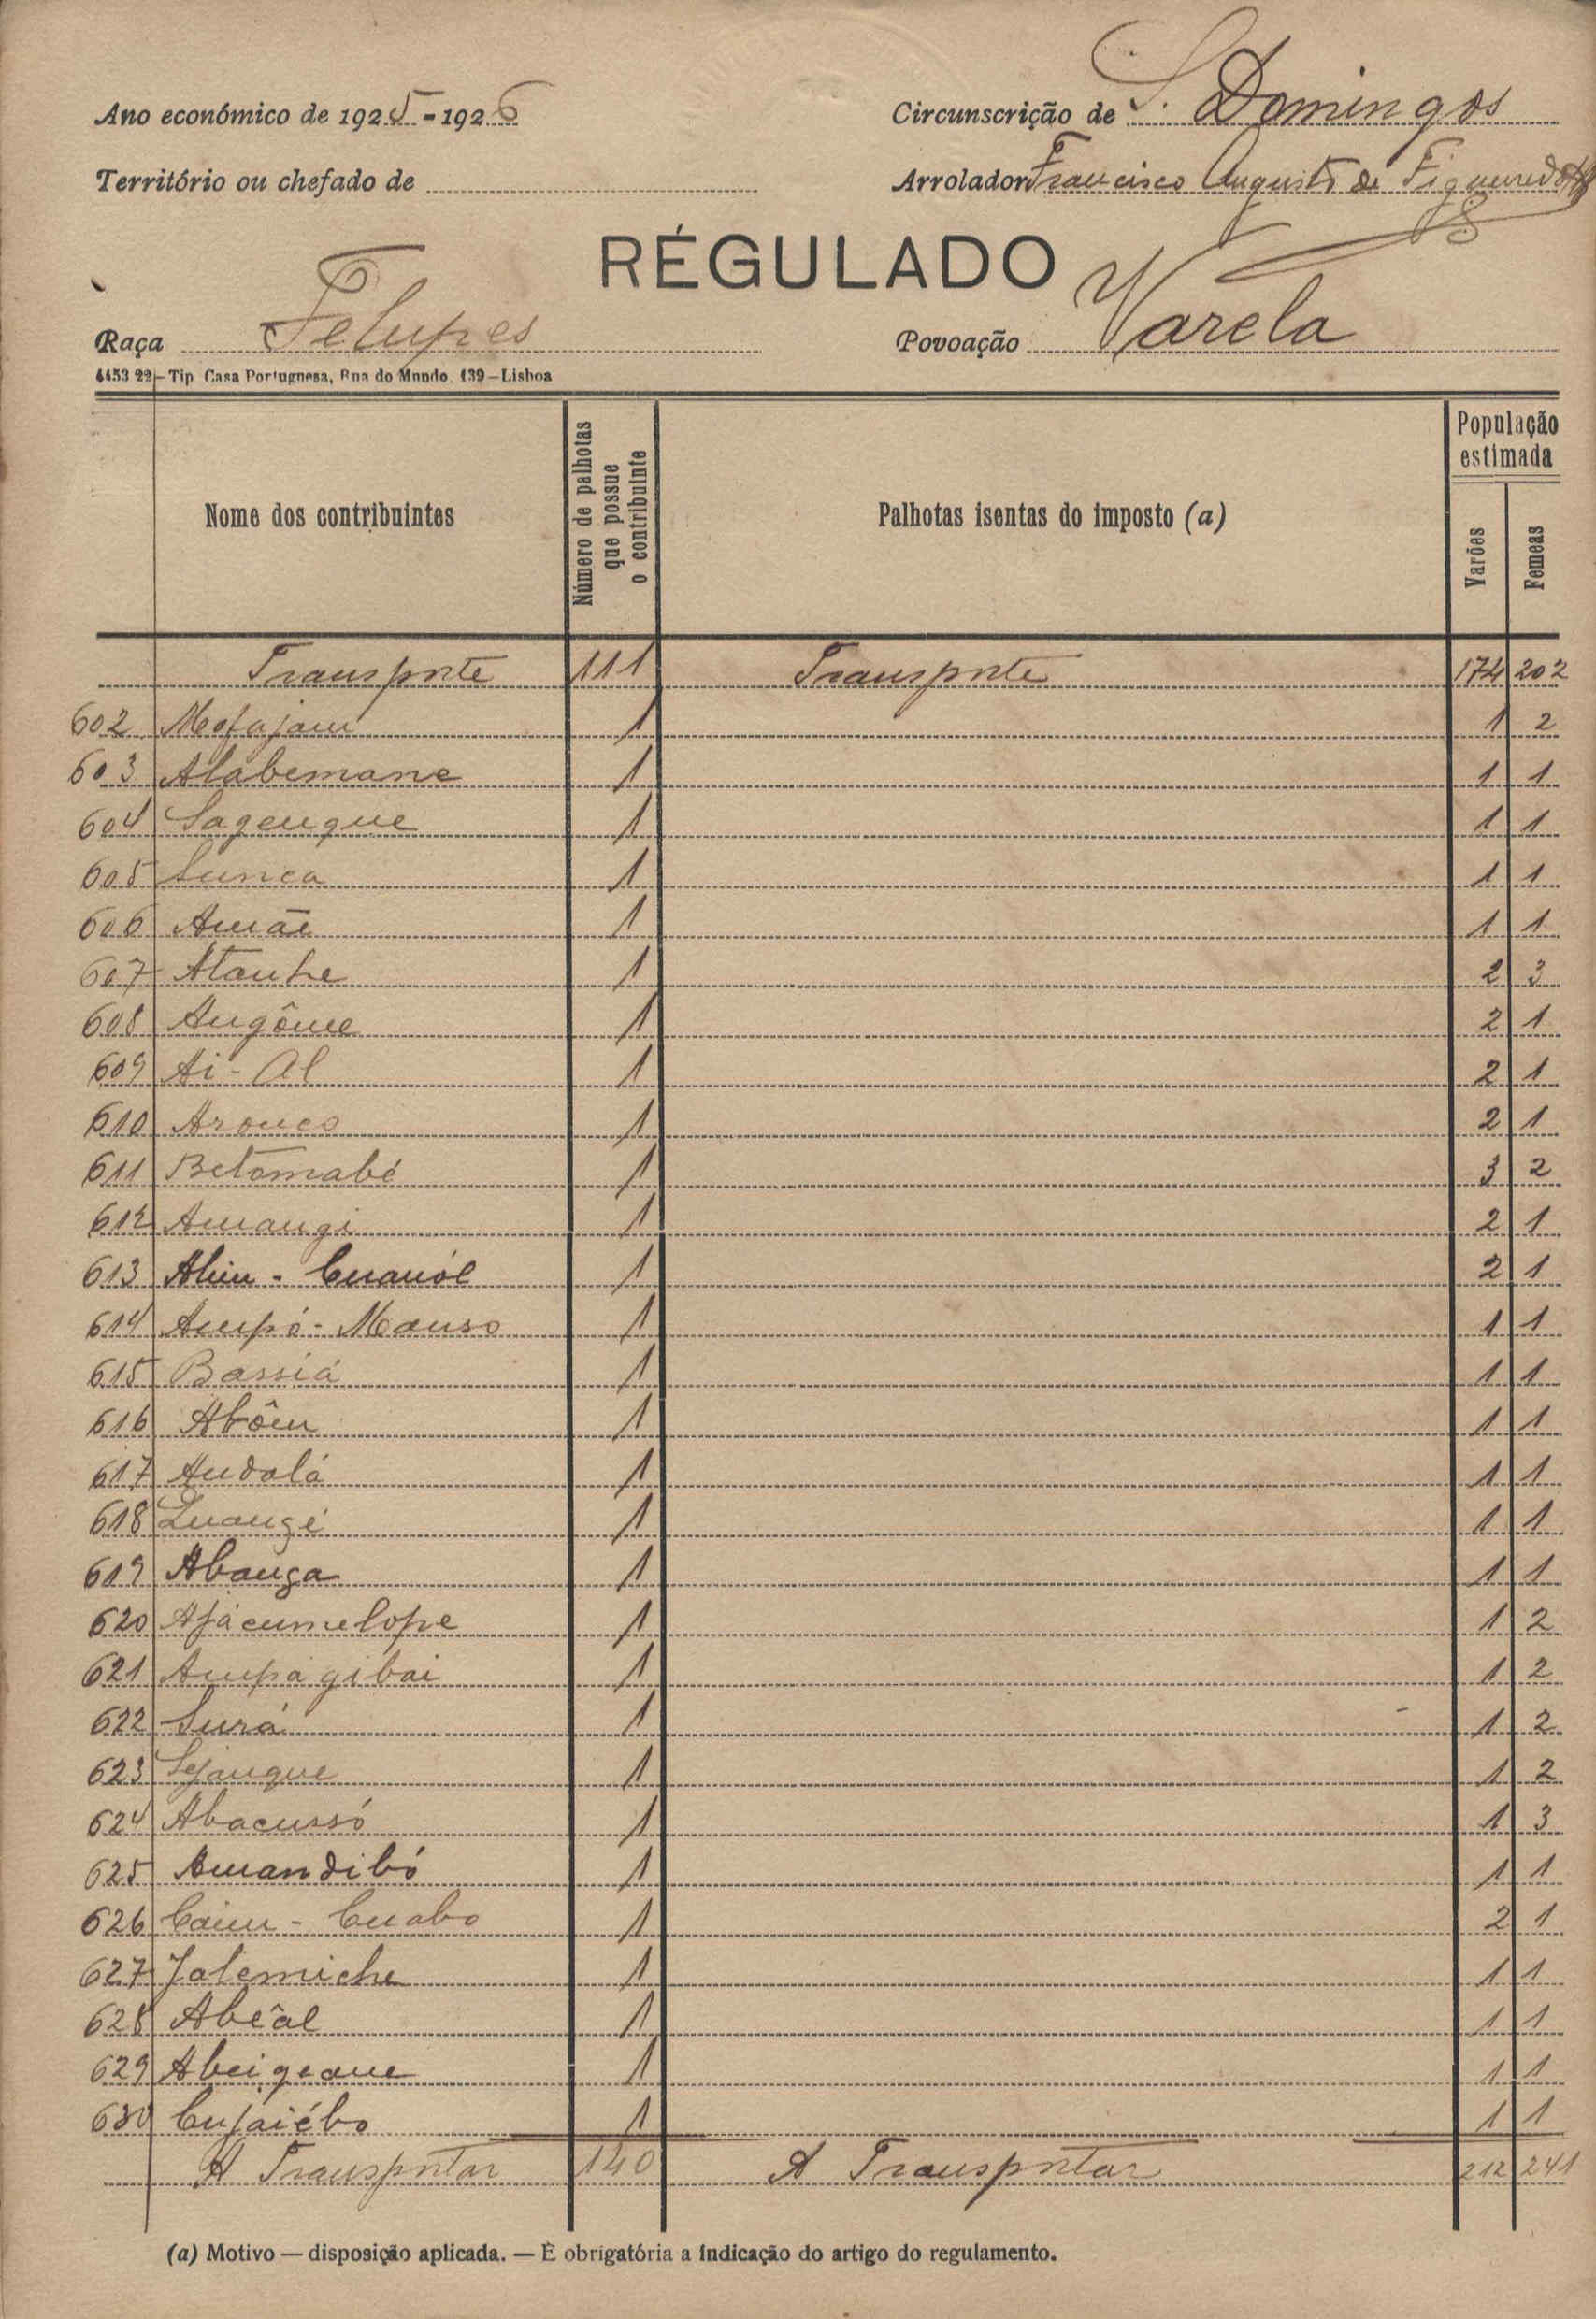 Ano económico de 1925-1926
Circunscrição de S. Domingos
Território ou chefado de
Arrolador Francisco Augusto de Figueiredo
RÉGULADO
Raça Felupes
Povoação Varela
4453 22—Tip Casa Portuguesa, Rua do Mundo, 139—Lisboa
Nome dos contribuintes
Número de palhotas que possue o contribuinte
Palhotas isentas do imposto (a)
População estimada
Varões
Femeas
Transporte 111 Transporte 174 202
602 Mofajam 1 1 2
603 Alabemane 1 1 1
604 Sagengue 1 1 1
605 Sunca 1 1 1
606 Amãe 1 1 1
607 Atanhe 1 2 3
608 Angôme 1 2 1
609 Ai-Al 1 2 1
610 Aronco 1 2 1
611 Betomabé 1 3 2
612 Amangi 1 2 1
613 1 2 1
614 Ampó-Manso 1 1 1
615 Bassiá 1 1 1
616 Abôm 1 1 1
617 Andolá 1 1 1
618 1 1 1
619 Abanga 1 1 1
620 Afácumelope 1 1 2
621 Ampágibai 1 1 2
622 Surá 1 1 2
623 Sejangue 1 1 2
624 Abacussó 1 1 3
625 Amandibó 1 1 1
626 Caim-Cuabo 1 2 1
627 Jalemiche 1 1 1
628 Abêal 1 1 1
629 1 1 1
630 Cujaiébo 1 1 1
A Transportar 140 A Transportar 212 241
(a) Motivo — disposição aplicada. — É obrigatória a indicação do artigo do regulamento.